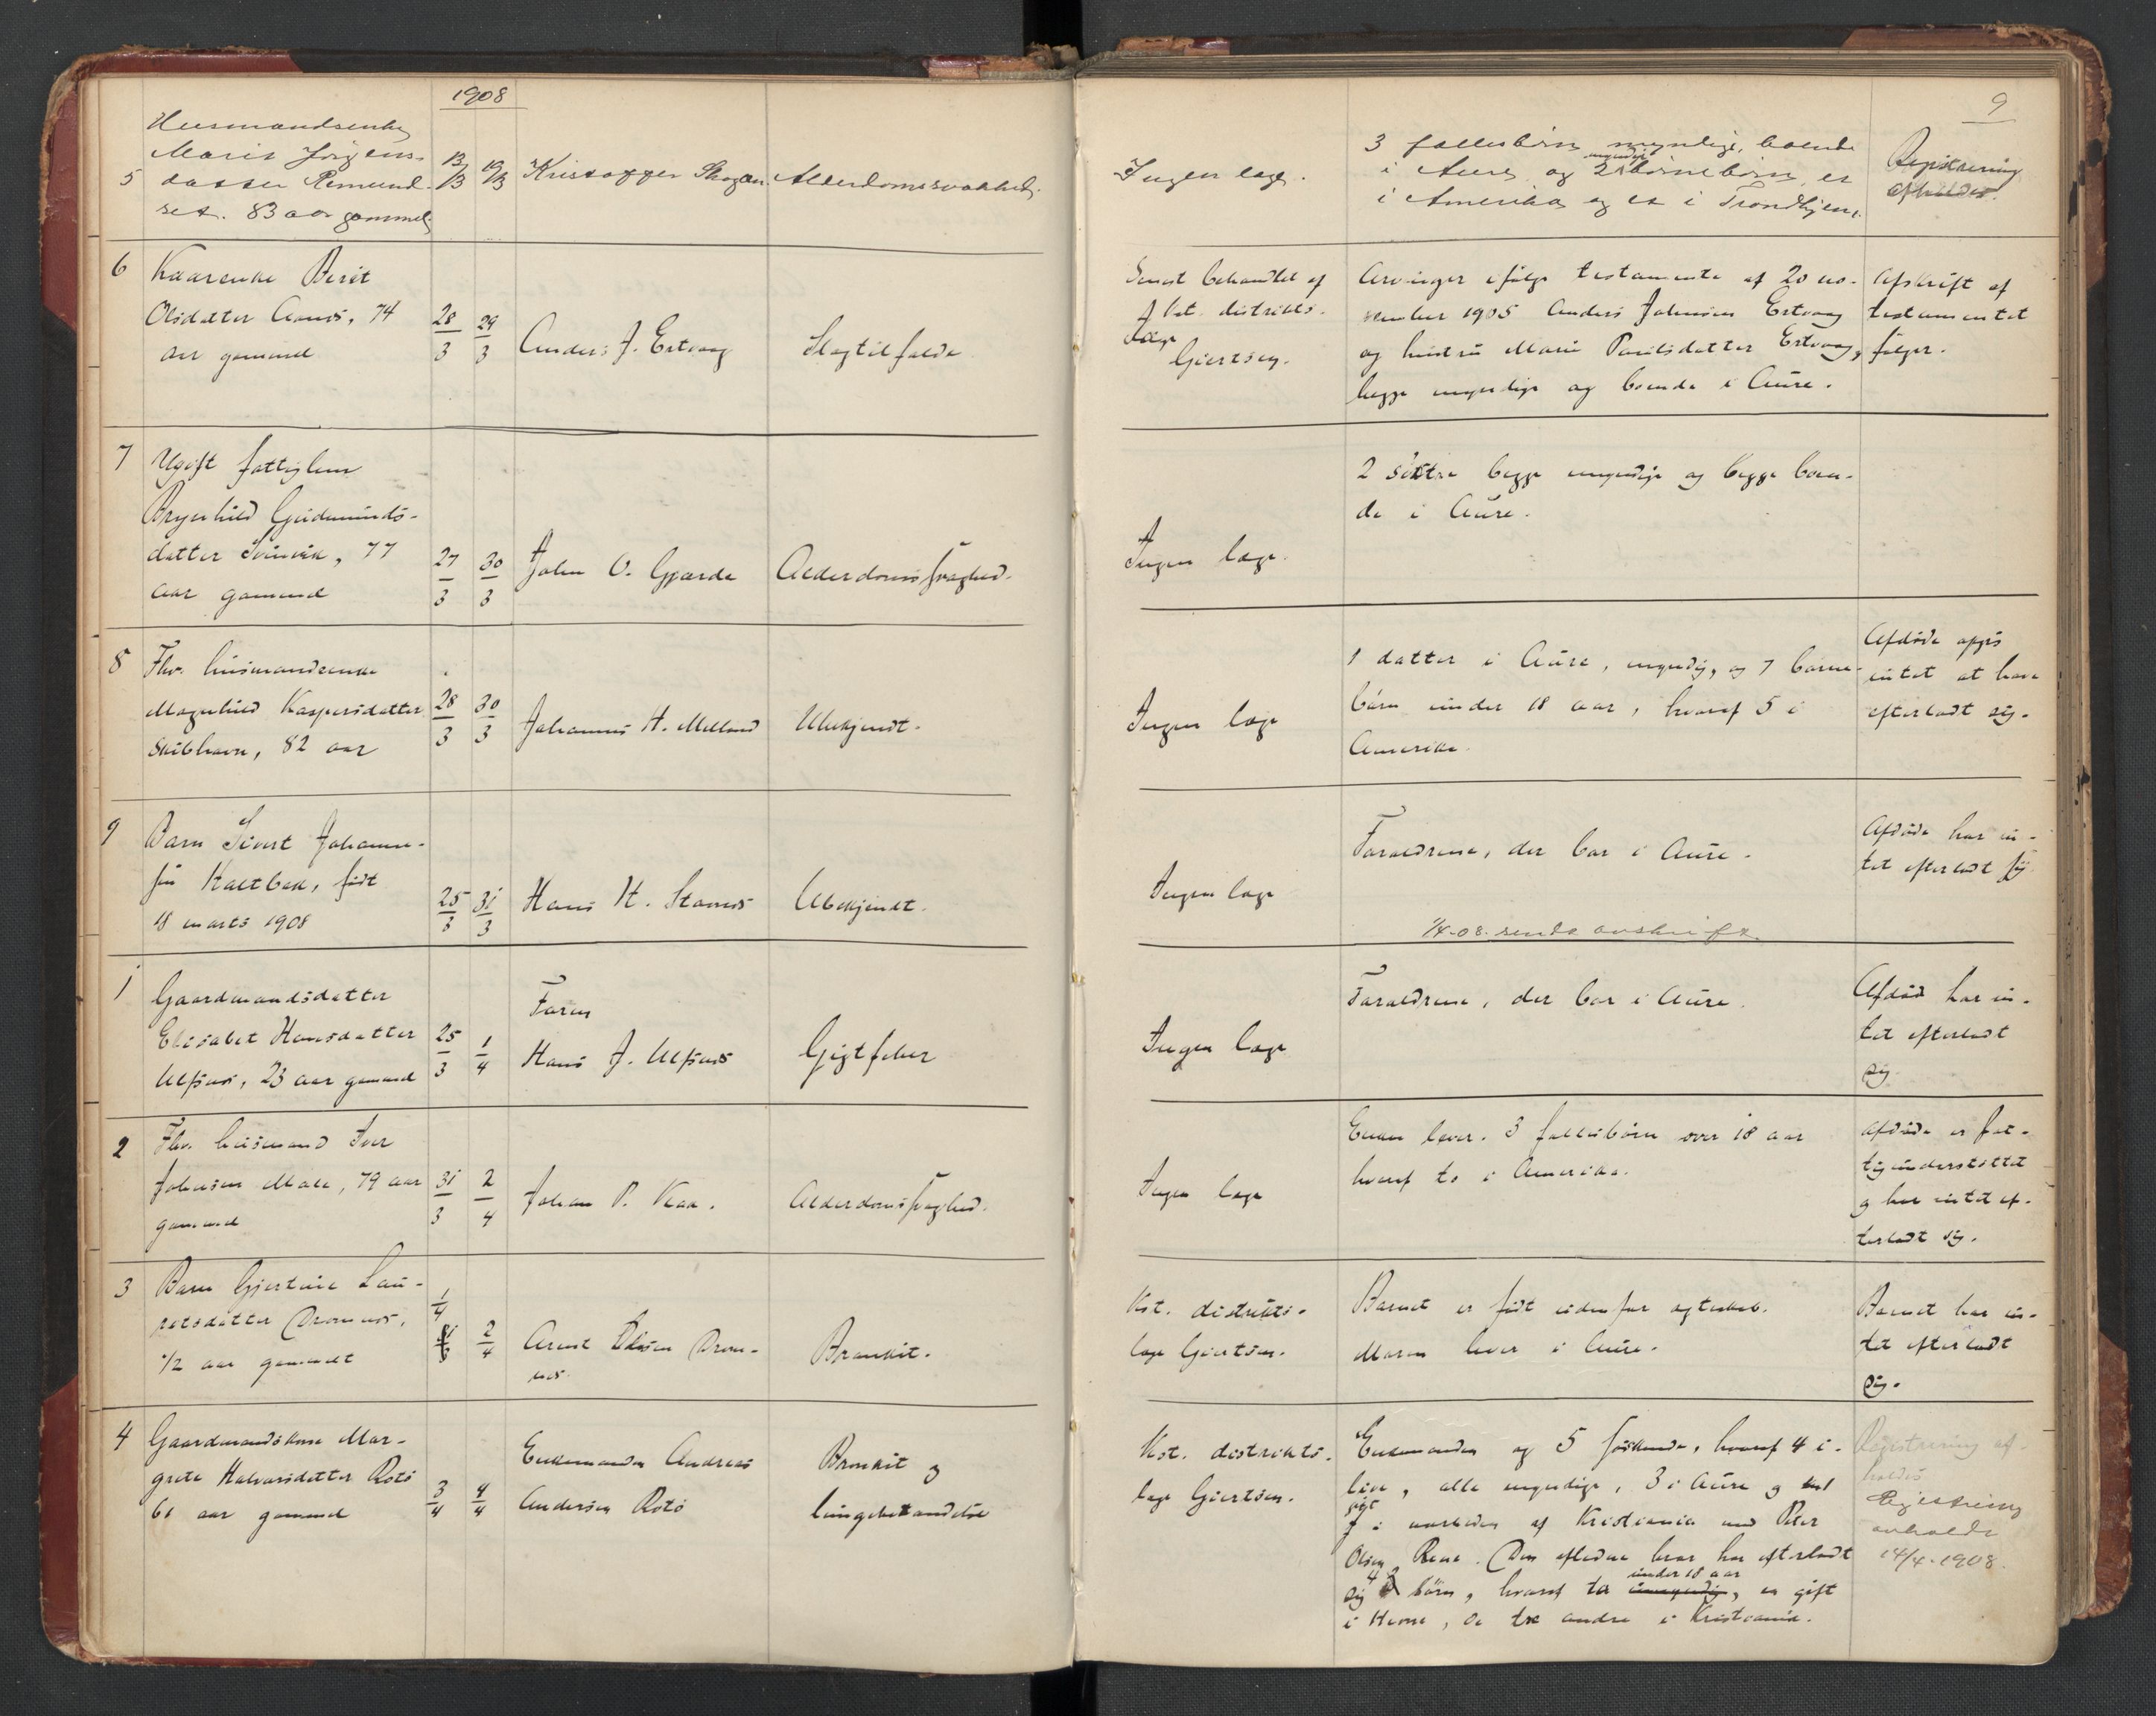 1908
9
Husmandsenke
Marit Jørgens-
5 datter Remund-
set. 83 aar gammel
13/3 19/3 Kristoffer Skogan Alderdomssvakhed.
Ingen læge.
3 fællesbørn myndige, boende
i Aure og 2 børnebørn, et
myndige
i Amerika og et i Trondhjem.
Registrering
afholdes.
6 Kaarenke Berit
Olsdatter Aanes, 74
aar gammel
28/3 29/3 Anders J. Ertvaag Slagtilfælde
Senest behandlet af
Kst. distrikts-
læge
Giertsen.
Arvinger ifølge testamente af 20 no-
vember 1905 Anders Johnsen Ertvaag
og hustru Marit Paulsdatter Ertvaag,
begge myndige og boende i Aure.
Afskrift af
testamentet
følger.
7 Ugift fattiglem
Brynhild Gudmunds-
datter Svinvik, 77
aar gammel
27/3 30/3 John O. Gjærde Alderdomssvaghed.
Ingen læge.
2 søstre begge myndige og begge boen-
de i Aure.
8 Fhv. husmandsenke
Magnhild Kaspersdatter
Skibhavn, 82 aar
28/3 30/3 Johannes H. Melland Ubekjendt.
Ingen læge
1 datter i Aure, myndig, og 7 børne-
børn under 18 aar, hvoraf 5 i
Amerika.
Afdøde opgis
intet at have
efterladt sig.
9 Barn Sivert Johannes-
søn Kaltbak, født
18 marts 1908
25/3 31/3 Hans H. Stamnes Ubekjendt.
Ingen læge
Forældrene, der bor i Aure.
1/4-08. sendt avskrift.
Afdøde har in-
tet efterladt sig
1 Gaardmandsdatter
Elisabet Hansdatter
Ulfsnes, 23 aar gammel
25/3 1/4 Faren
Hans J. Ulfsnes Gigtfeber
Ingen læge
Forældrene, der bor i Aure.
Afdøde har in-
tet efterladt
sig.
2 Fhv. husmand Iver
Johnsen Male, 79 aar
gammel
31/3 2/4 Johan P. Kaa. Alderdomssvaghed.
Ingen læge
Enken lever. 3 fællesbørn over 18 aar
hvoraf to i Amerika.
Afdøde er fat-
tigunderstøttet
og har intet ef-
terladt sig.
3 Barn Gjertine Lau-
ritsdatter Dromnes,
1/2 aar gammelt
1/4 2/4 Arnt Olsen Drom-
nes. Bronkit.
Kst. distrikts-
læge Giertsen.
Barnet er født udenfor ægteskab.
Moren lever i Aure.
Barnet har in-
tet efterladt
sig.
4 Gaardmandskone Mar-
grete Halvorsdatter Rotø
61 aar gammel
3/4 4/4 Enkemanden Andreas
Andersen Rotø
Bronkit og
lungebetændelse
Kst. distrikts-
læge Giertsen.
Enkemanden og 5 søskende, hvoraf 4 i-
live, alle myndige, 3 i Aure og
gift
i nærheden af Kristiania med Peter
Olsen Rene. Den afdøde bror har efterladt
sig 4 børn, hvoraf
under 18 aar
, en gift
i Hevne, de tre andre i Kristiania.
Registrering af-
holdes.
Registrering
avholdt
14/4.1908.